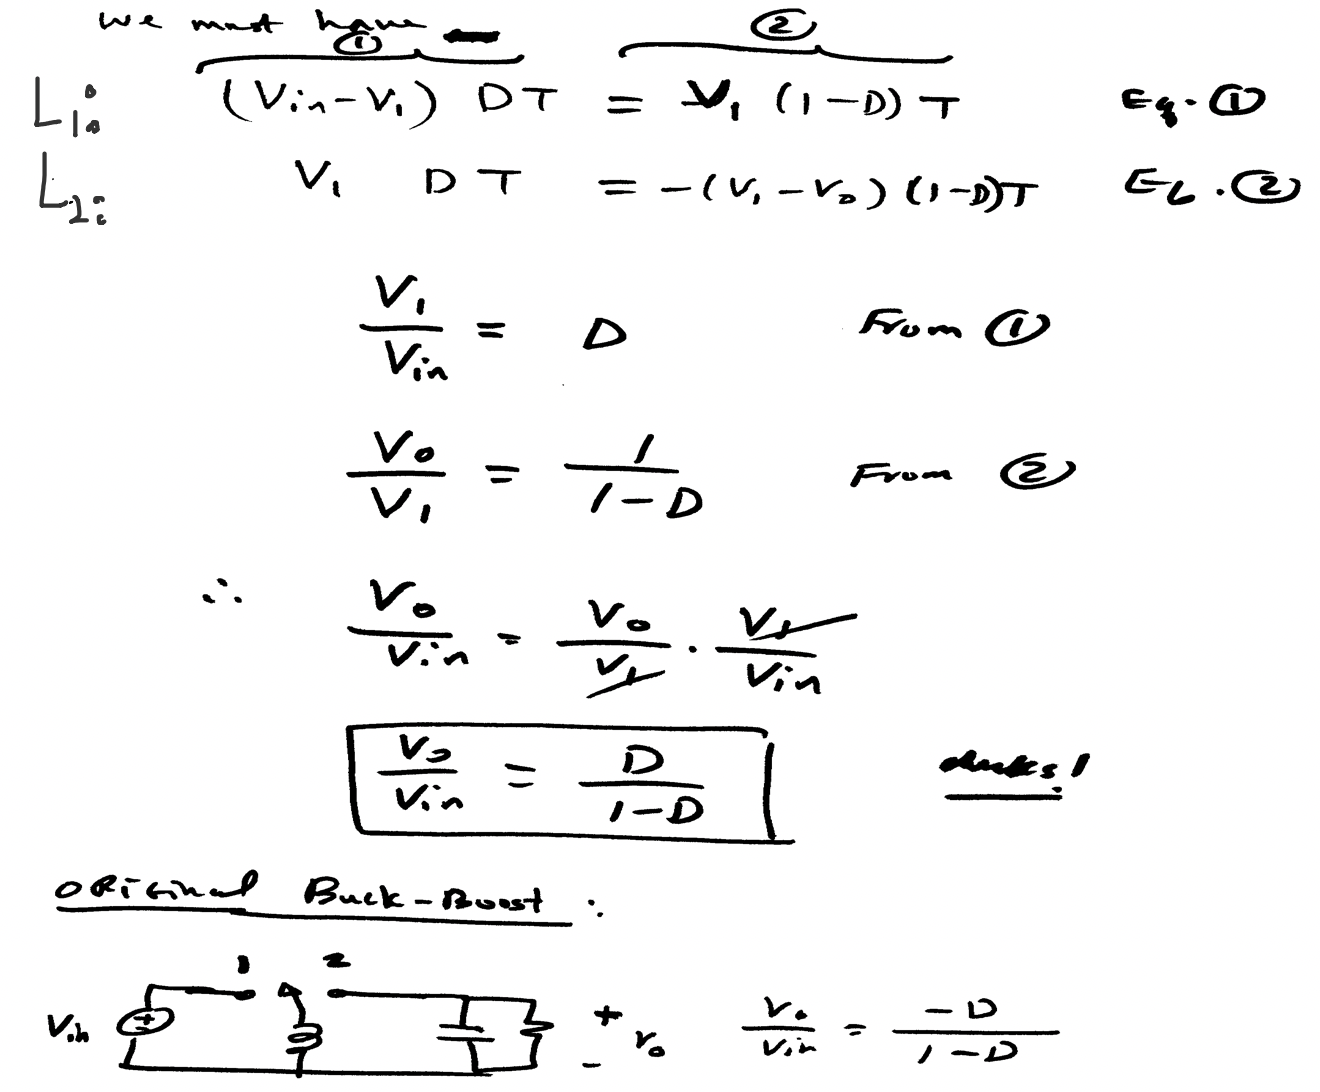 we must have
① ②
L₁: (Vin-V₁) DT = V₁ (1-D) T Eq. ①
L₂: V₁ DT = -(V₁ - V₀) (1-D)T Eq. ②
V₁/Vin = D From ①
V₀/V₁ = 1/(1-D) From ②
∴ V₀/Vin = V₀/V₁ · V₁/Vin
V₀/Vin = D/(1-D) checks!
Original Buck-Boost :
1 2
Vin + - + - V₀ V₀/Vin = -D/(1-D)